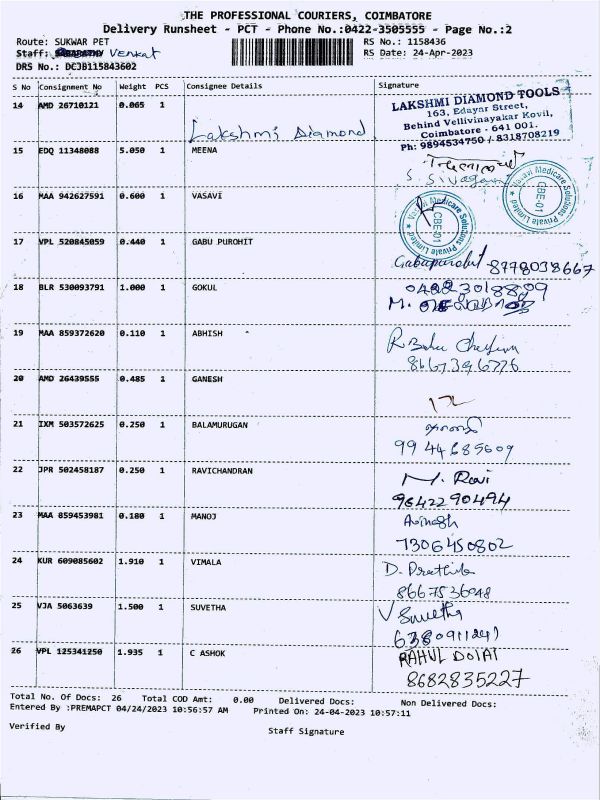 THE PROFESSIONAL COURIERS, COIMBATORE
Delivery Runsheet - PCT - Phone No.:0422-3505555 - Page No.:2
Route: SUKWAR PET RS No.: 1158436
Staff: Venkat RS Date: 24-Apr-2023
DRS No.: DEJB115843602
S No Consignment No Weight PCS Consignee Details Signature
14 AMD 26710121 0.065 1 Lakshmi Diamond
LAKSHMI DIAMOND TOOLS
163, Edayar Street,
Behind Vellivinayakar Kovil,
Coimbatore - 641 001.
Ph: 9894534750 / 8318708219
15 EDQ 11348088 5.050 1 MEENA
16 MAA 942627591 0.600 1 VASAVI
Vasavi Medicare Solutions Private Limited
CBE-01
Vasavi Medicare Solutions Private Limited
CBE-01
17 VPL 520845059 0.440 1 GABU PUROHIT
Gabupurohit 8778038667
18 BLR 530093791 1.000 1 GOKUL
19 MAA 859372620 0.110 1 ABHISH
20 AMD 26439555 0.485 1 GANESH
21 IXM 503572625 0.250 1 BALAMURUGAN
22 JPR 502458187 0.250 1 RAVICHANDRAN
M. Ravi
9642290494
23 MAA 859453981 0.180 1 MANOJ
Avinash
7306450802
24 KUR 609085602 1.910 1 VIMALA
25 VJA 5063639 1.500 1 SUVETHA
V Suvetha
26 VPL 125341250 1.935 1 C ASHOK
RAHUL DOLAI
8682835227
Total No. Of Docs: 26 Total COD Amt: 0.00 Delivered Docs: Non Delivered Docs:
Entered By :PREMAPCT 04/24/2023 10:56:57 AM Printed On: 24-04-2023 10:57:11
Verified By Staff Signature